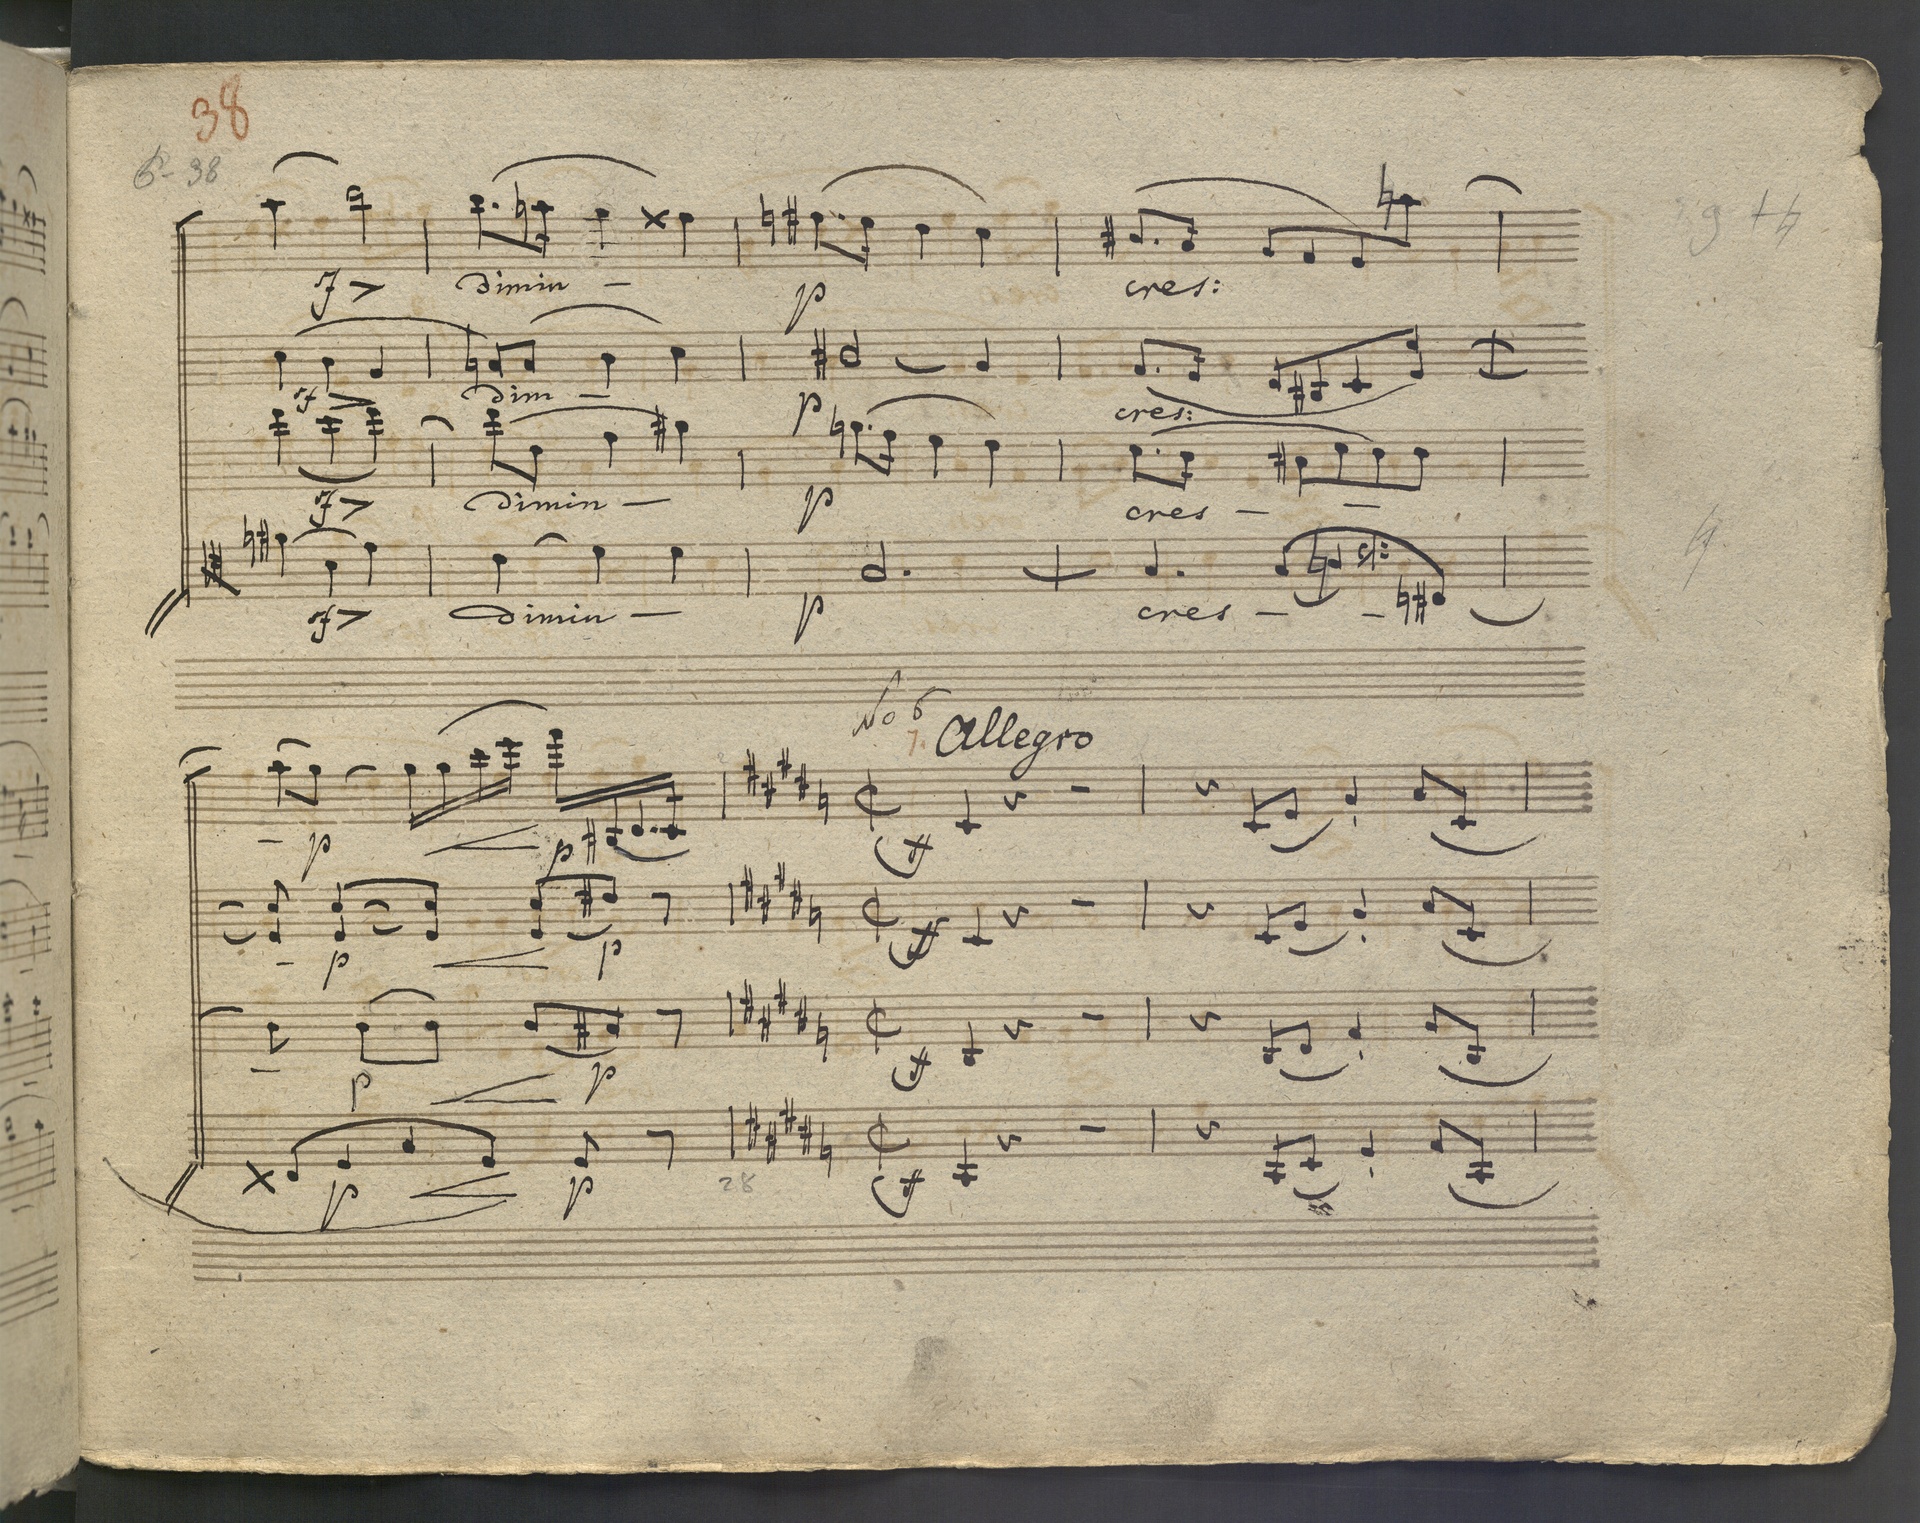 38
6-38
sf dimin p cres:
sf dim p cres:
sf dimin p cres
sf dimin p cres
No 6
7. Allegro
p p ff
p p ff
p p ff
p p ff
28